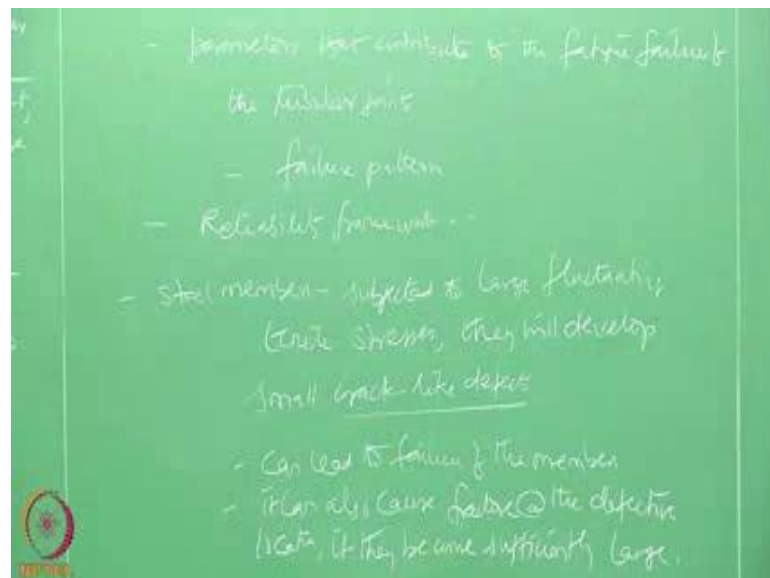 - parameters that contribute to the fatigue failure of
the tubular joint
- failure pattern
- Reliability framework - -
- Steel members - subjected to large fluctuating
tensile stresses, they will develop
small crack-like defects
- Can lead to failure of the member
- it can also cause fracture @ the defective
locatn, if they become sufficiently large.